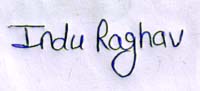 Indu Raghav